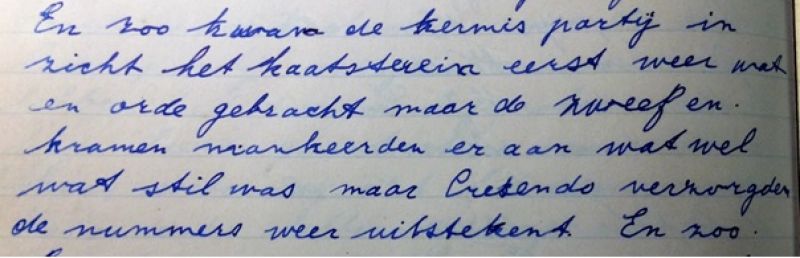 En zoo kwam de kermis partij in
zicht het kaatsterein eerst weer wat
en orde gebracht maar de zweef en.
kramen mankeerden er aan wat wel
wat stil was maar Cresendo verzorgden
de nummers weer uitstekent. En zoo.